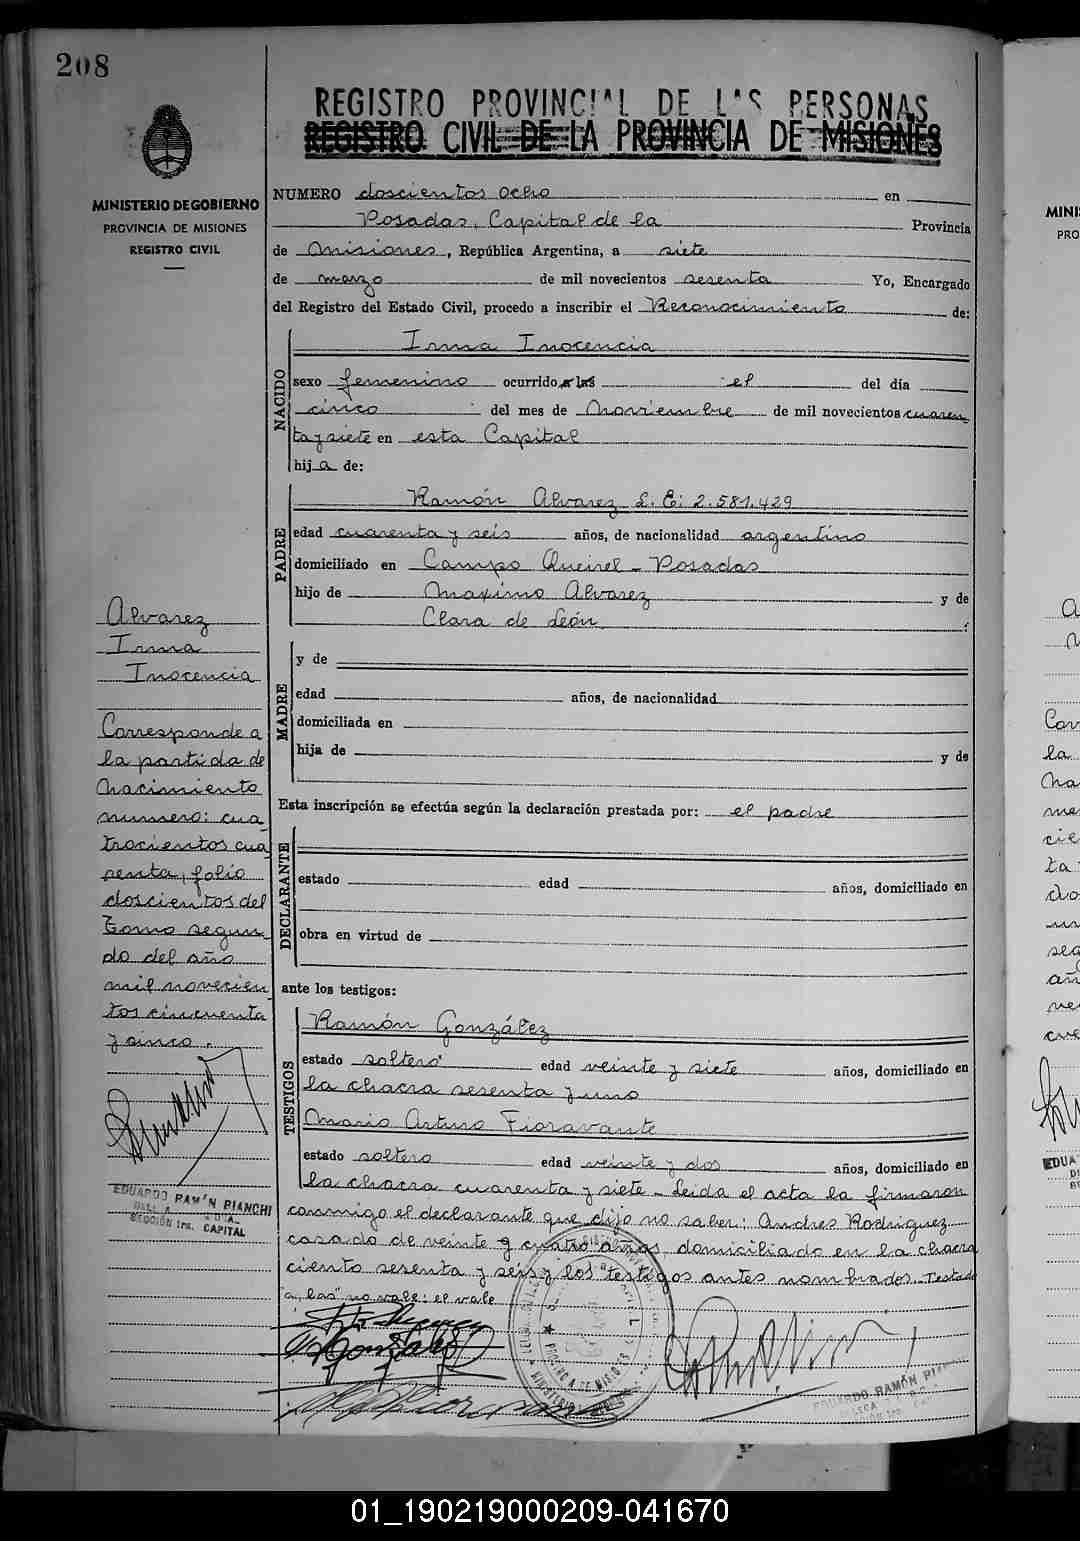 208
REGISTRO PROVINCIAL DE LAS PERSONAS
REGISTRO CIVIL DE LA PROVINCIA DE MISIONES
MINISTERIO DE GOBIERNO
PROVINCIA DE MISIONES
REGISTRO CIVIL
NUMERO doscientos ocho en
Posadas, Capital de la Provincia
de Misiones, República Argentina, a siete
de marzo de mil novecientos sesenta Yo, Encargado
del Registro del Estado Civil, procedo a inscribir el Reconocimiento de:
NACIDO
Irma Inocencia
sexo femenino ocurrido a las el del día
cinco del mes de Noviembre de mil novecientos cuaren
ta y siete en esta Capital
hija de:
PADRE
Ramón Alvarez L. E: 2.581.429
edad cuarenta y seis años, de nacionalidad argentino
domiciliado en Campo Queirel - Posadas
hijo de Maximo Alvarez y de
Clara de León
MADRE
y de
edad años, de nacionalidad
domiciliada en
hija de y de
Esta inscripción se efectúa según la declaración prestada por: el padre
DECLARANTE
estado edad años, domiciliado en
obra en virtud de
ante los testigos:
TESTIGOS
Ramón González
estado soltero edad veinte y siete años, domiciliado en
la chacra sesenta y uno
Mario Arturo Fioravante
estado soltero edad veinte y dos años, domiciliado en
la chacra cuarenta y siete - Leida el acta la firmaron
conmigo el declarante que dijo no saber: Andres Rodriguez
casado de veinte y cuatro años, domiciliado en la chacra
ciento sesenta y seis y los testigos antes nombrados. Testado
"a, las" no vale: el vale
Alvarez
Irma
Inocencia
Corresponde a
la partida de
Nacimiento
numero: cua
trocientos cua
renta, folio
doscientos del
Tomo segun
do del año
mil novecien
tos cincuenta
y cinco.
EDUARDO RAMÓN PIANCHI
SECCIÓN 1ra. CAPITAL
EDUARDO RAMÓN PIAN
PROVINCIA DE MISIONES
MINIS
PRO
Corr
la
Na
me
cie
ta
do
seg
añ
ve
EDUA
01_190219000209-041670